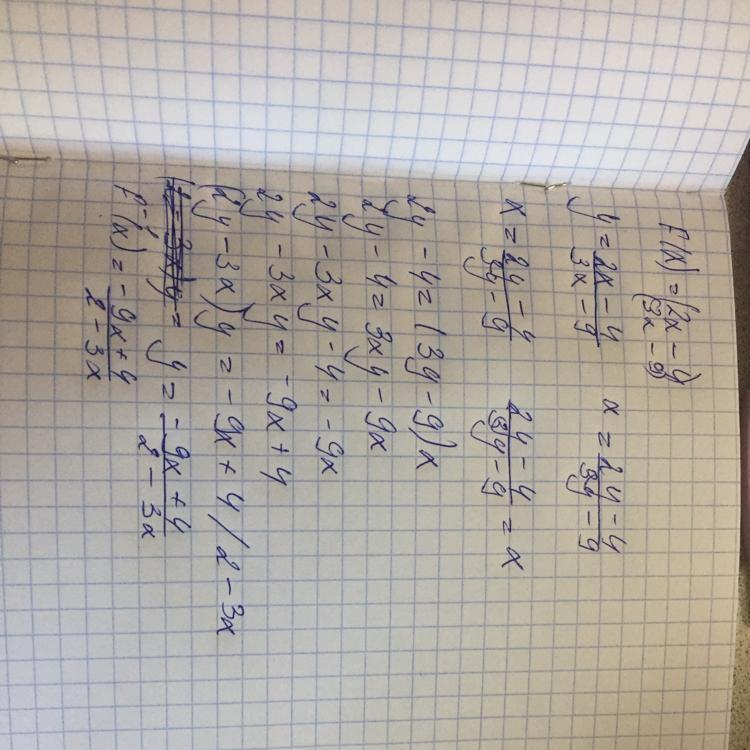 F(x) = (2x - 4)/(3x - 9)
y = (2x - 4)/(3x - 9)    x = (2y - 4)/(3y - 9)
x = (2y - 4)/(3y - 9)    (2y - 4)/(3y - 9) = x
2y - 4 = (3y - 9)x
2y - 4 = 3xy - 9x
2y - 3xy - 4 = -9x
2y - 3xy = -9x + 4
(2y - 3x)y = -9x + 4 / 2 - 3x
y = (-9x + 4)/(2 - 3x)
F⁻¹(x) = (-9x + 4)/(2 - 3x)